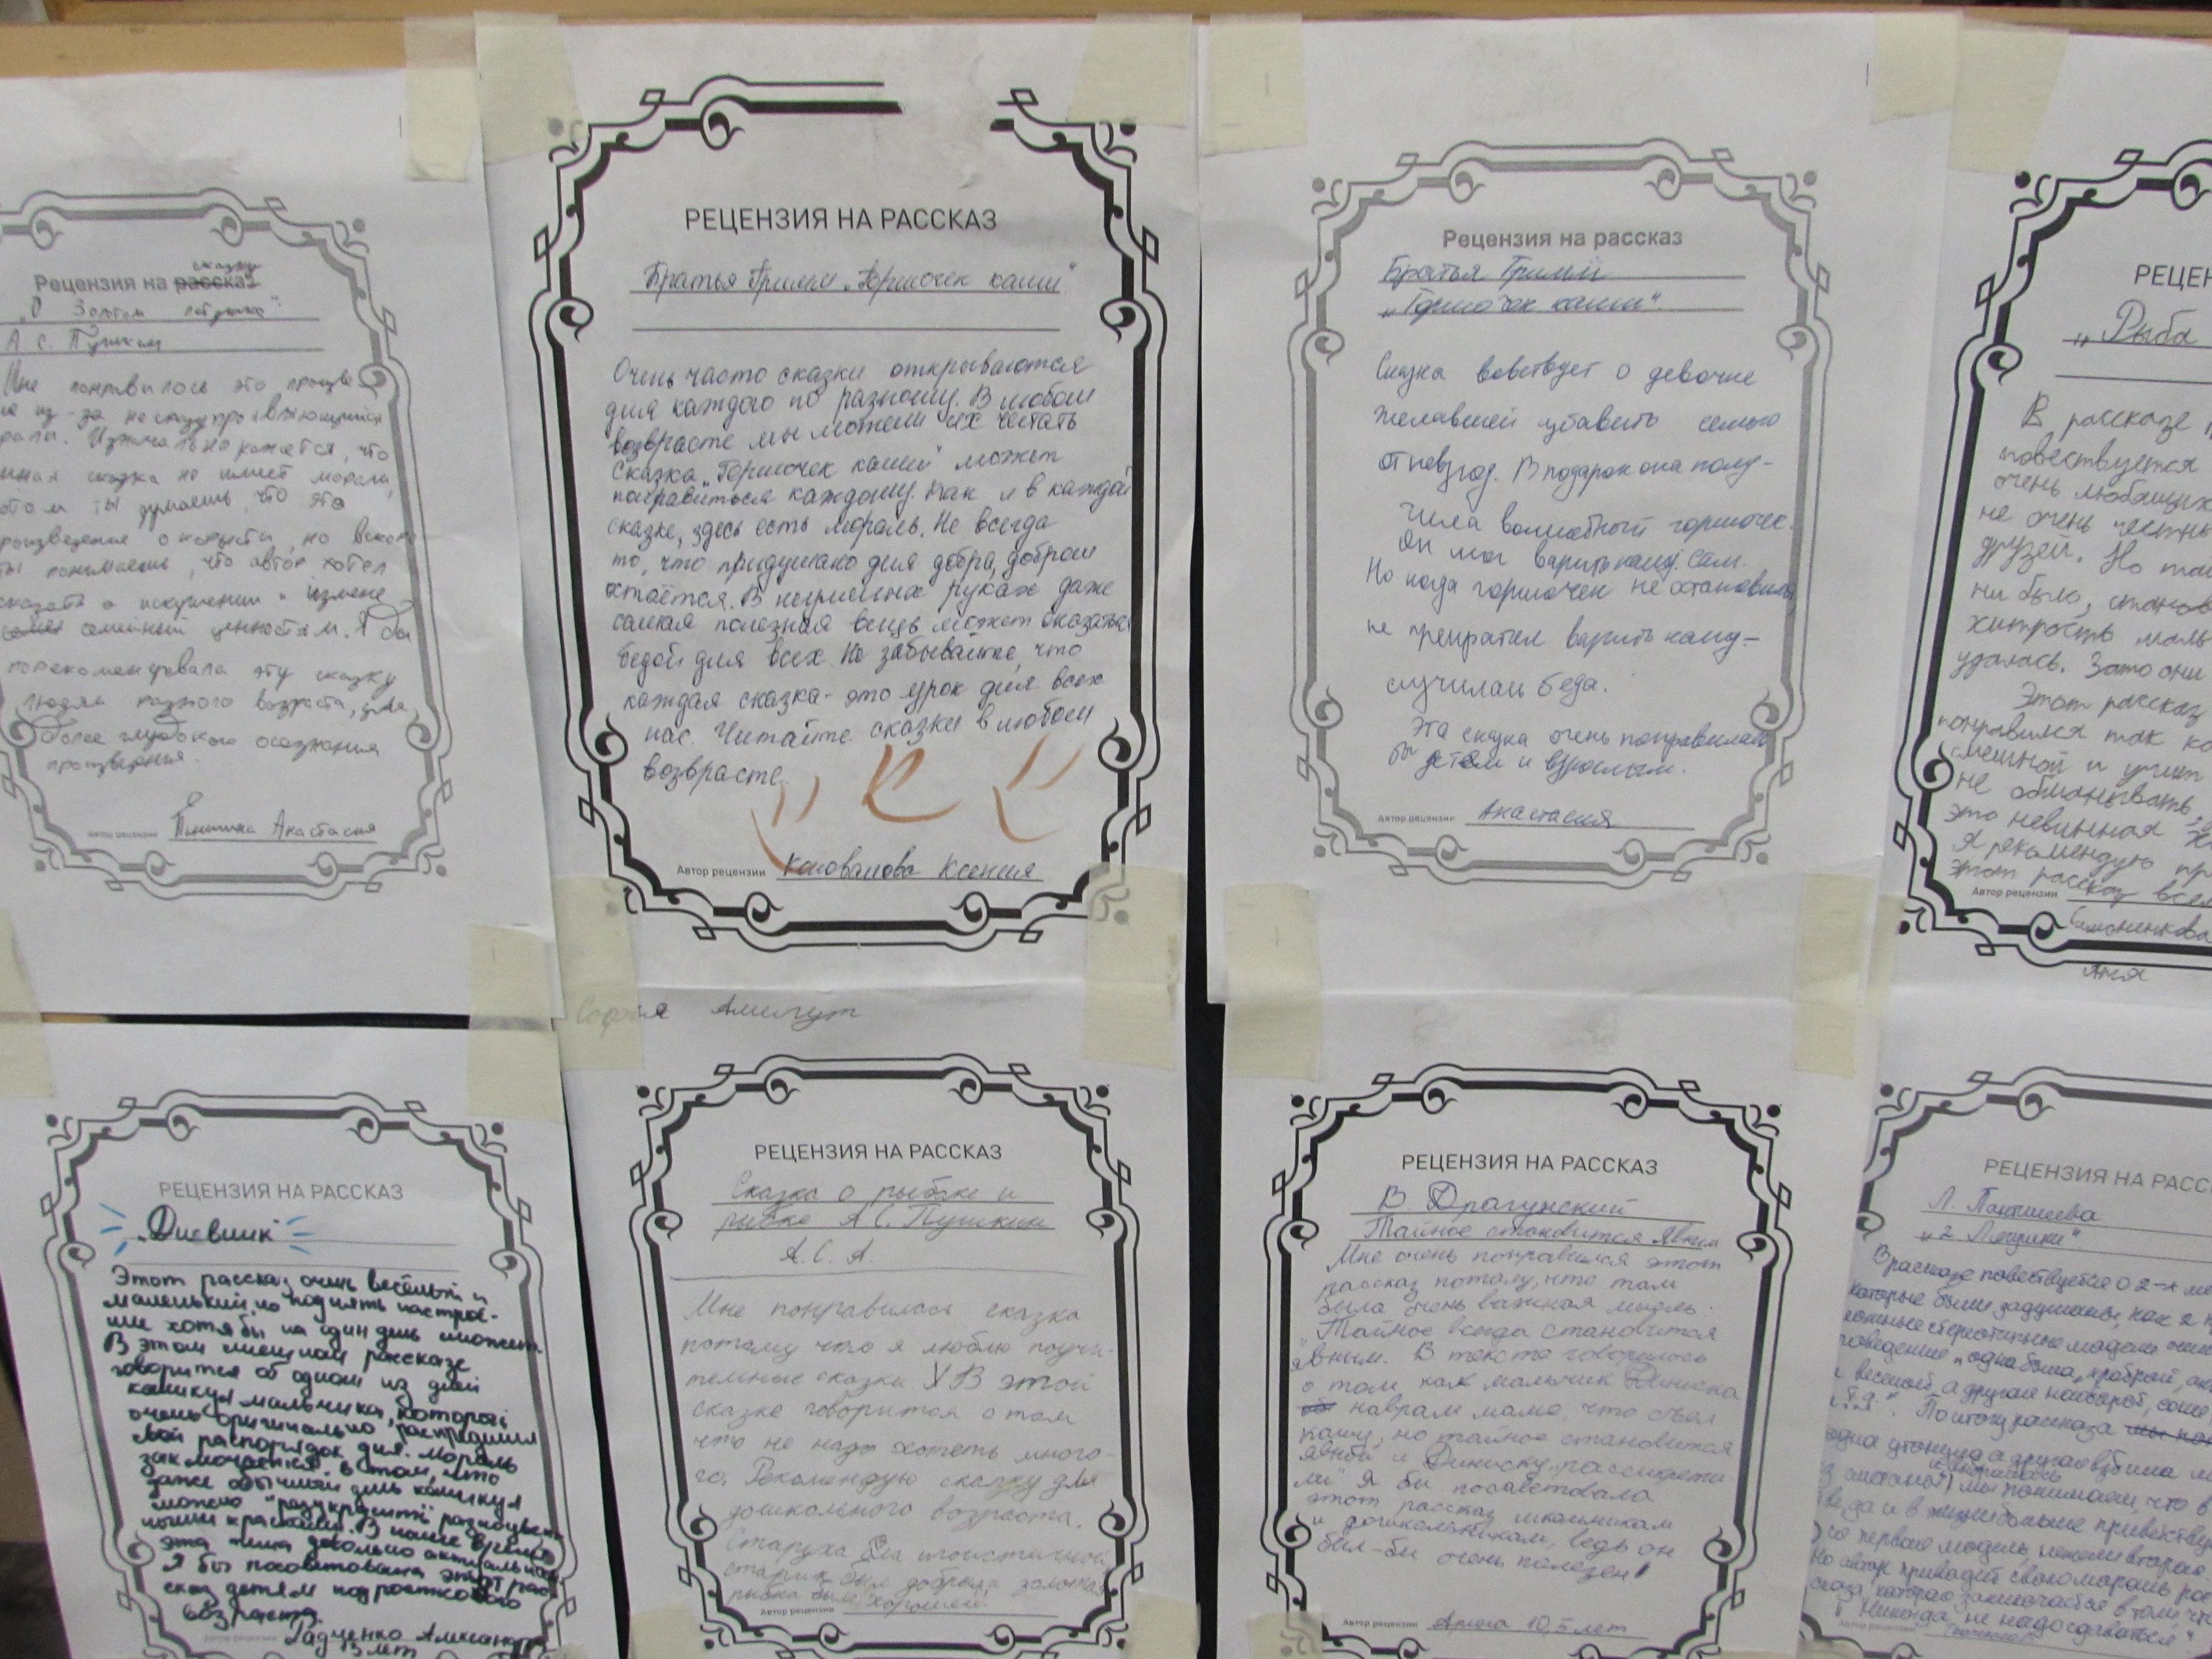 сказку
Рецензия на рассказ
"О Золотом петушке".
А С. Пушкин
Мне понравилось это произве-
из-за несразу проявляющейся
Изначально кажется, что
сказка не имеет морали,
ты думаешь, что это
произведение о корысти, но вскоре
ты понимаешь, что автор хотел
сказать о искушении и измене
семейным ценностям. Я бы
порекомендовала эту сказку
людям разного возраста, для
более глубокого осознания
произведения.
Автор рецензии Анастасия
РЕЦЕНЗИЯ НА РАССКАЗ
Братья Гримм „Горшочек каши"
Очень часто сказки открываются
для каждого по разному. В любом
возврасте мы можем их читать
Сказка „Горшочек каши" может
понравиться каждому. Как и в каждой
сказке, здесь есть мораль. Не всегда
то, что придумано для добра, добром
остаётся. В неумелых руках даже
самая полезная вещь может оказаться
бедой для всех. Не забывайте, что
каждая сказка - это урок для всех
нас. Читайте сказки в любом
возврасте.
Автор рецензии Коновалова Ксения
Рецензия на рассказ
Братья Гримм
„Горшочек каши".
Сказка вовствует о девочке
желавшей избавить семью
от невзгод. В подарок она полу-
чила волшебный горшочек.
Он мог варить кашу сам.
Но когда горшочек не остановили,
не прекратил варить кашу-
случилась беда.
Эта сказка очень понравилась
бы детям и взрослым.
Автор рецензии Анастасия
РЕЦЕН
„Рыба
В рассказе
повествуется
очень любящих
не очень честн
друзей. Но как
ни было,
хитрость маль
удалась. Зато они
Этот рассказ
понравился так ка
смешной и учит
не обманывать,
это невинная
Я рекомендую пр
этот рассказ всем
Автор рецензии
Самоненкова
Аня
РЕЦЕНЗИЯ НА РАССКАЗ
„Дневник"
Этот рассказ очень весёлый и
маленький, но поднять настрое-
ние хотя бы на один день сможет.
В этом смешном рассказе
говорится об одном из дней
каникул мальчика, который
очень оригинально распределил
свой распорядок дня. Мораль
заключается в том, что
даже обычный день каникул
можно "разукрасить" разноцвет-
ными красками. В наше время
эта тема довольно актуальная
Я бы посоветовала этот рас-
сказ детям подросткового
возраста.
Радченко Александр
13 лет
София Амирут
РЕЦЕНЗИЯ НА РАССКАЗ
Сказка о рыбаке и
рыбке А.С. Пушкин
А.С.А.
Мне понравилась сказка
потому что я люблю поучи-
тельные сказки В этой
сказке говорится о том
что не надо хотеть много-
го. Рекомендую сказку для
дошкольного возраста.
Старуха была эгоистичной
старик был добрый, золотая
рыбка была хорошей.
Автор рецензии
РЕЦЕНЗИЯ НА РАССКАЗ
В. Драгунский
Тайное становится явным
Мне очень понравился этот
рассказ потому, что там
была очень важная мысль:
„Тайное всегда становится
явным. В тексте говорилось
о том как мальчик Дениска
наврал маме, что съел
кашу, но тайное становится
явным и Дениску „рассекрети-
ли" Я бы посоветовала
этот рассказ школьникам
и дошкольникам, ведь он
был-бы очень полезен!
Автор рецензии Арина 10,5 лет
РЕЦЕНЗИЯ НА РАССК
Л. Пантелеева
„2 Лягушки".
В рассказе повествуется о 2-х
которые были задуманы, как я
поведение „одна была храброй,
и весёлой, а другая наоборот,
и т.д.". По итогу рассказа
одна утонула а другая взбила
мы понимаем, что в
Но автор приводит свою мораль
которая заключается в том, что
„Никогда не надо сдаваться".